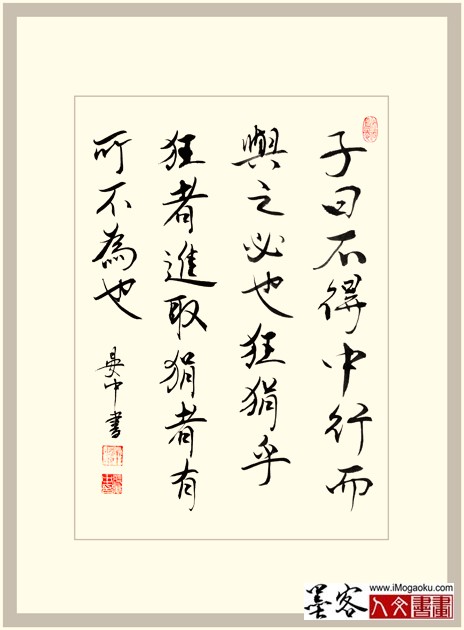 子曰不得中行而
與之必也狂狷乎
狂者進取狷者有
所不為也
中書
墨客
www.iMogaoku.com
人文書畫